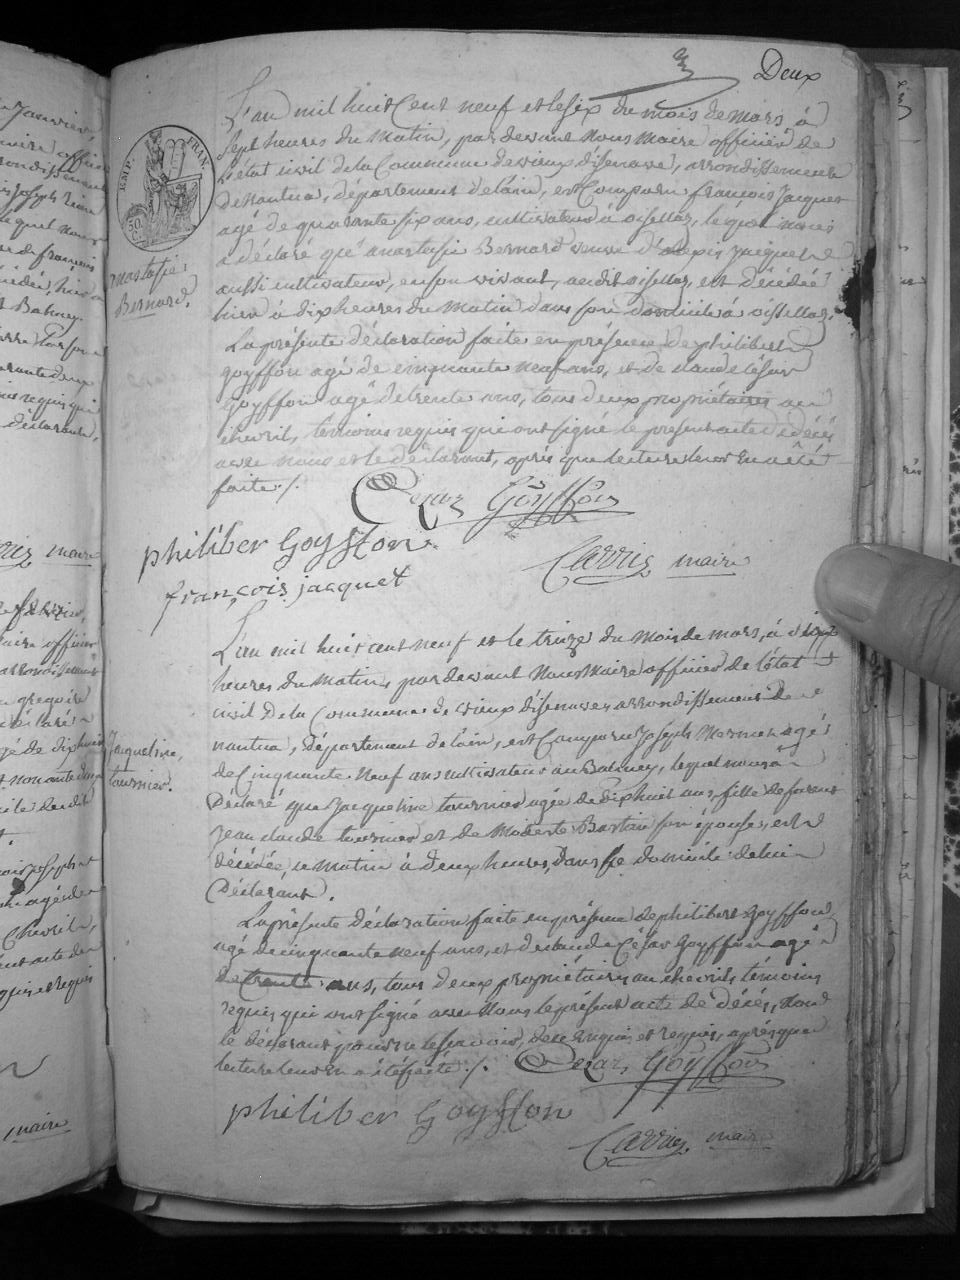 Deux
L'an mil huit Cent neuf et le six du mois de mars à
sept heures du Matin, par devant Nous Maire officier de
l'état civil de la Commune de vieux d'isenave, arrondissement
de Nantua, département de l'ain, est Comparu françois Jacquet
agé de quarante six ans, cultivateur à oisellaz, lequel nous
a déclaré qu'anastasie Bernard veuve d' Jacquet
aussi cultivateur, en son vivant, audit oisellaz, est décédée
hier à dix heures du Matin dans son domicile à oisellaz,
La présente déclaration faite en présence de philibert
goyffon agé de cinquante neuf ans, et de claude César
Goyffon agé de trente ans, tous deux propriétaires au
chevril, témoins requis qui ont signé le present acte de décés
avec nous et le déclarant, après que lecture leur en a été
faite ./.
Cezar Goyffon
philiber Goyffon
Carrier maire
françois jacquet
EMP. FRAN.
50.
C.
anastasie
Bernard.
L'an mil huit cent neuf et le treize du mois de mars, à dix
heures du Matin, par devant Nous Maire officier de l'état
civil de la Commune de vieux d'isenave, arrondissement de
nantua, département de l'ain, est Comparu Joseph Mermet agé
de Cinquante Neuf ans cultivateur au Balmey, lequel nous a
Déclaré que Jacqueline tournier agée de dix huit ans, fille de feu
Jean claude tournier et de Modeste Bastian son épouse, est
décédée, ce matin à deux heures, dans le domicile de lui
Déclarant.
La présente déclaration faite en présence de philibert Goyffon
agé de cinquante neuf ans, et de claude César Goyffon agé
de trente ans, tous deux propriétaires au chevril, témoins
requis qui ont signé avec Nous le présent acte de décés, Non
le déclarant pour ne le savoir, de ce enquis et requis, après que
lecture leur en a été faite ./.
Cezar Goyffon
philiber Goyffon
Carrier maire
Jacqueline
tournier.
maire
maire